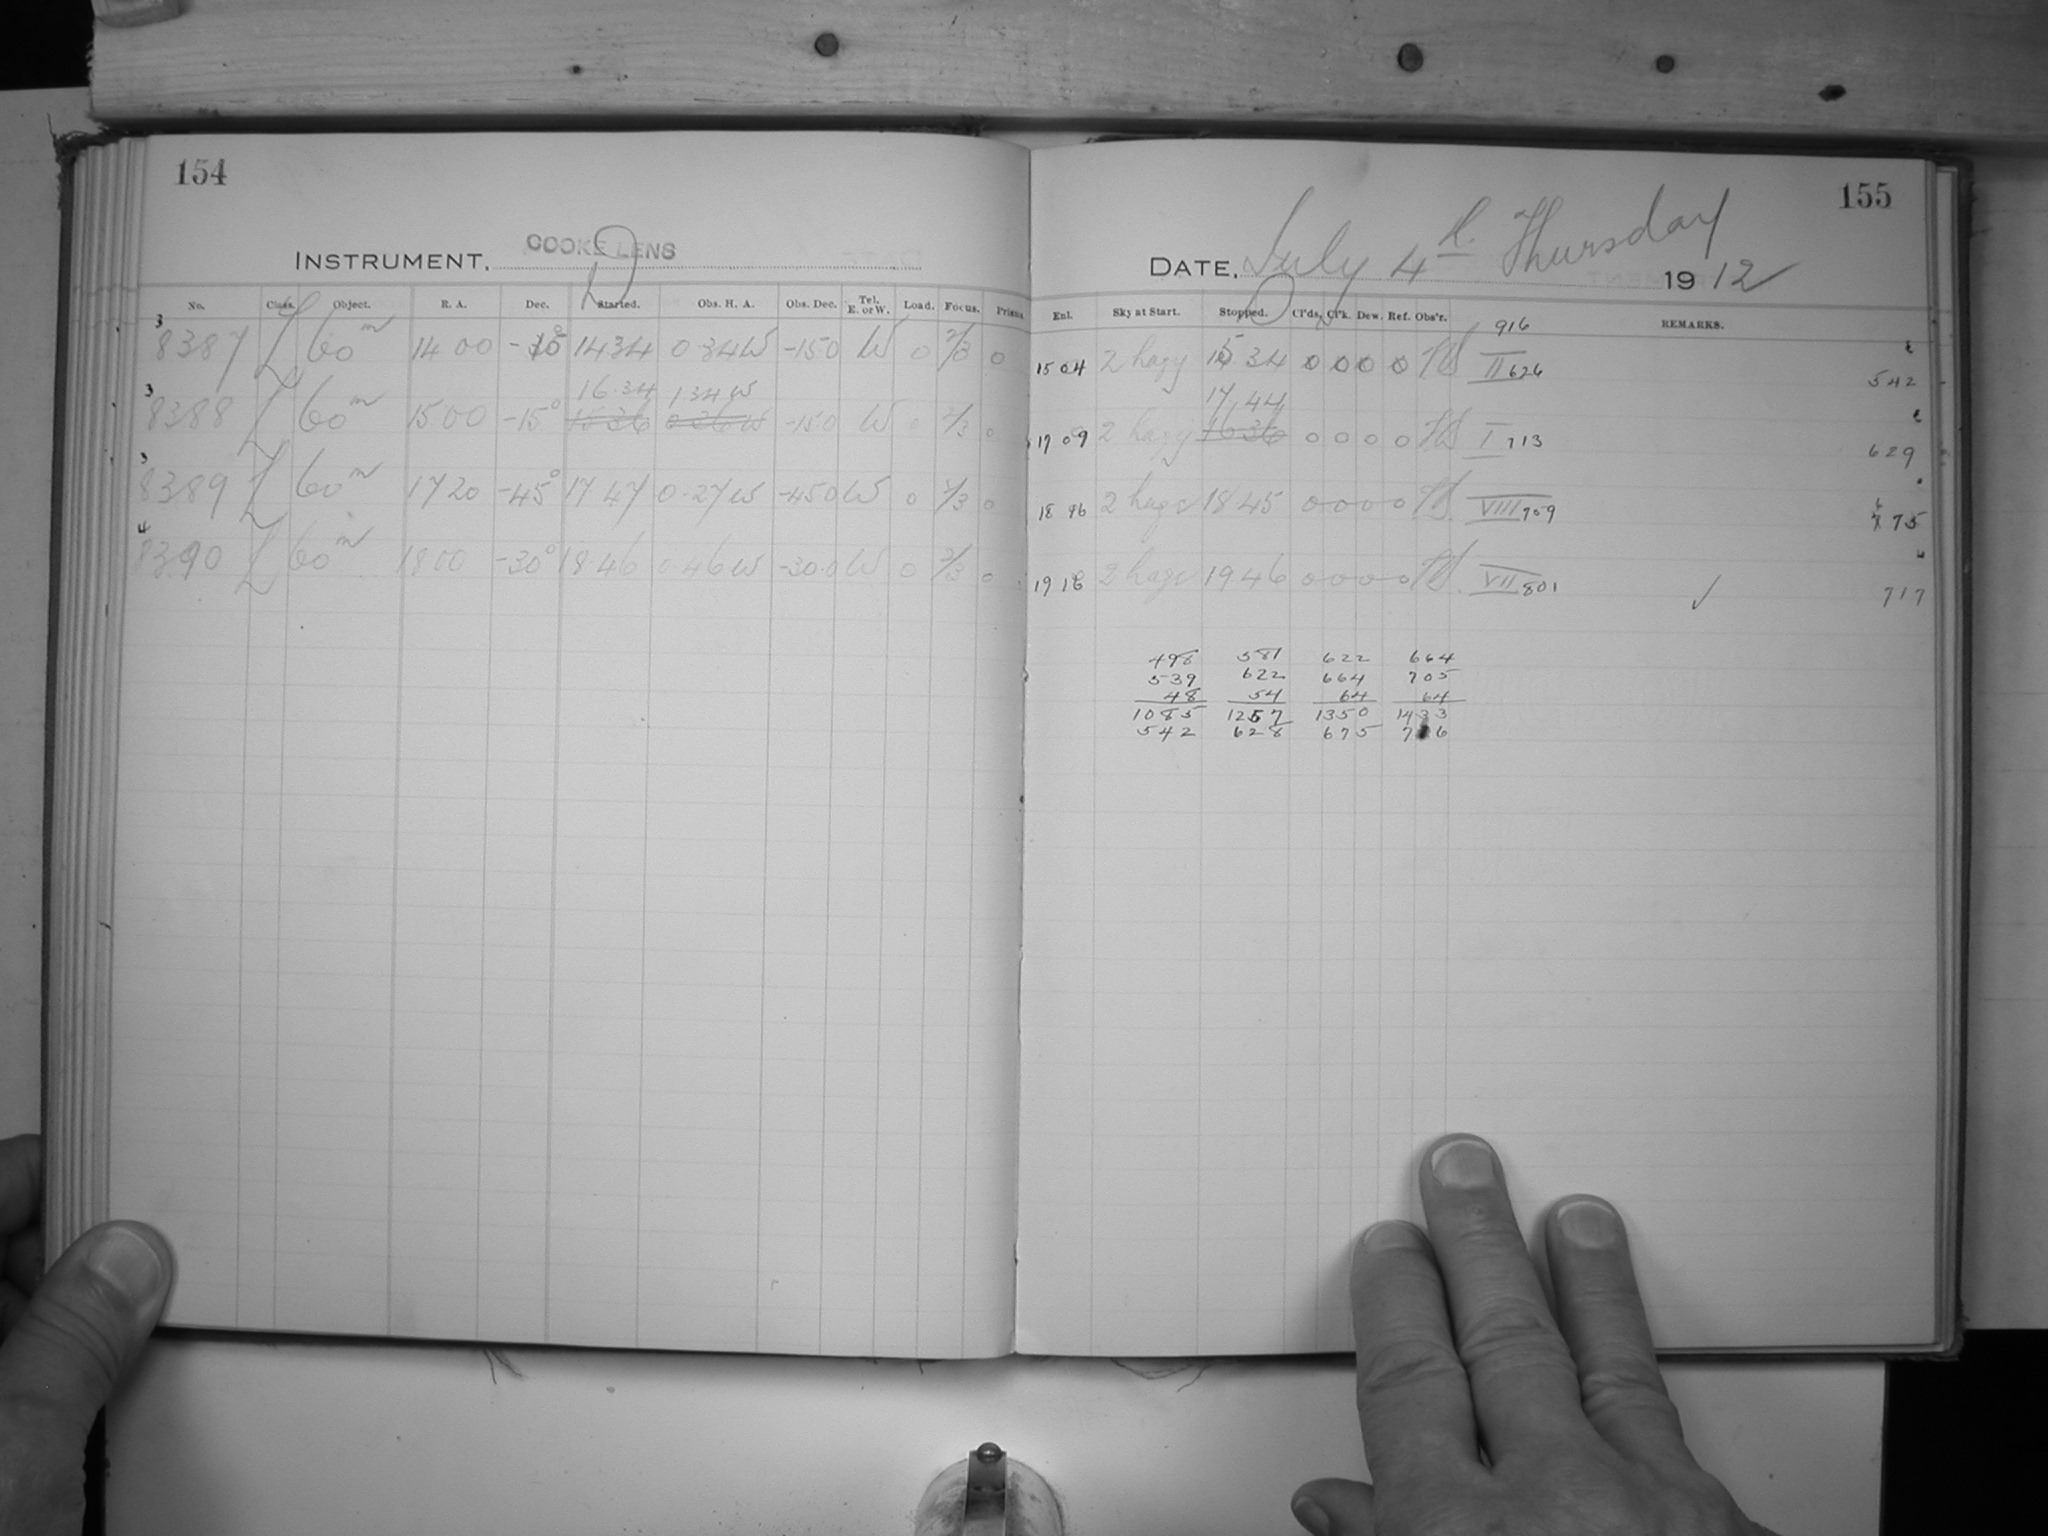 154
INSTRUMENT, COOKE LENS
No. Class. Object. R. A. Dec. Started. Obs. H. A. Obs. Dec. Tel. E. or W. Load. Focus. Prisms
3
8387 L 60m 14 00 -15° 1434 0.34W -15.0 W 0 2/3 0
16.34 1 34 W
3
8388 L 60m 15 00 -15° 1536 0 36 W -15.0 W 0 2/3 0
3
8389 L 60m 17 20 -45° 17 47 0.27W -45.0 W 0 2/3 0
4
8390 L 60m 18 00 -30° 18.46 0.46W -30.0 W 0 2/3 0
155
DATE, July 4th Thursday 1912
Enl. Sky at Start. Stopped. Cl'ds. Cl'k. Dew. Ref. Obs'r. REMARKS.
916
15 04 2 hazy 15 34 0 0 0 0 II 626 542
17 44
17 09 2 hazy 1636 0 0 0 0 I 713 629
18 45 0 0 0 0 VIII 759 75
19 16 19 46 0 0 0 0 VII 801 ✓ 717
498 581 622 664
539 622 664 705
48 54 64 64
1085 1257 1350 1433
542 628 675 716